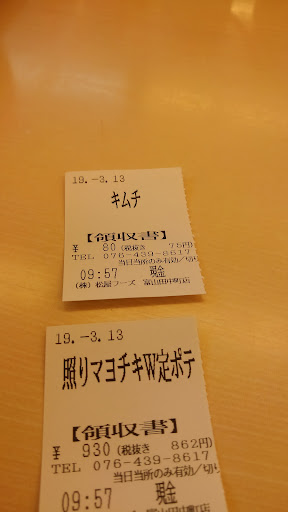 19.-3.13
キムチ
【領収書】
¥ 80 (税抜き 75円)
TEL 076-439-8617
当日当所のみ有効/切り
09:57 現金
(株) 松屋フーズ 富山田中町店
19.-3.13
照りマヨチキW定ポテ
【領収書】
¥ 930 (税抜き 862円)
TEL 076-439-8617
当日当所のみ有効/切り
09:57 現金
富山田中町店